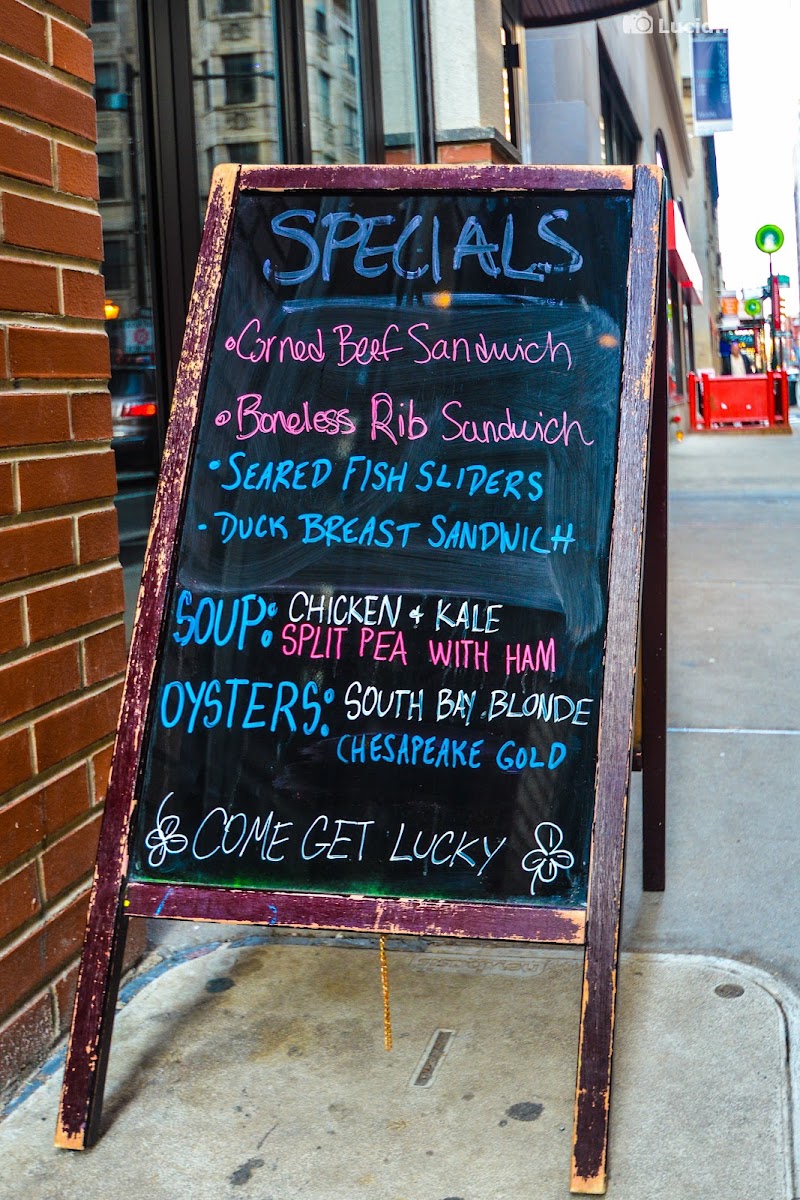 SPECIALS
• Corned Beef Sandwich
• Boneless Rib Sandwich
• SEARED FISH SLIDERS
- DUCK BREAST SANDWICH
SOUP: CHICKEN & KALE
SPLIT PEA WITH HAM
OYSTERS: SOUTH BAY BLONDE
CHESAPEAKE GOLD
COME GET LUCKY